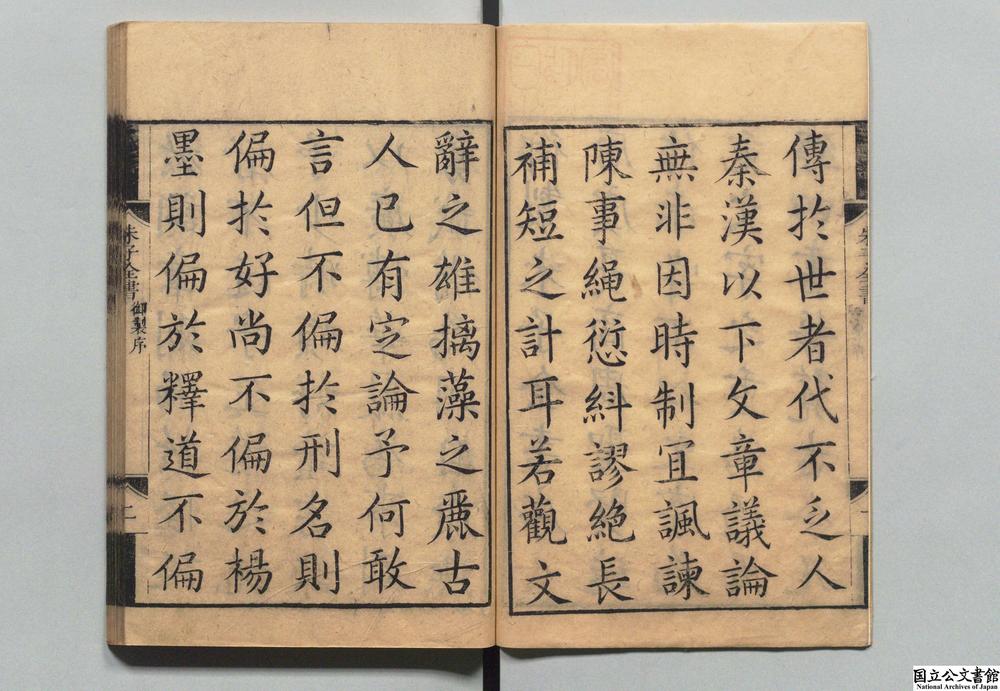 傳於世者代不乏人
秦漢以下文章議論
無非因時制宜諷諫
陳事繩愆糾謬絕長
補短之計耳若觀文
辭之雄摛藻之麗古
人已有定論予何敢
言但不偏於刑名則
偏於好尚不偏於楊
墨則偏於釋道不偏
朱子全書 御製序
二
国立公文書館
National Archives of Japan